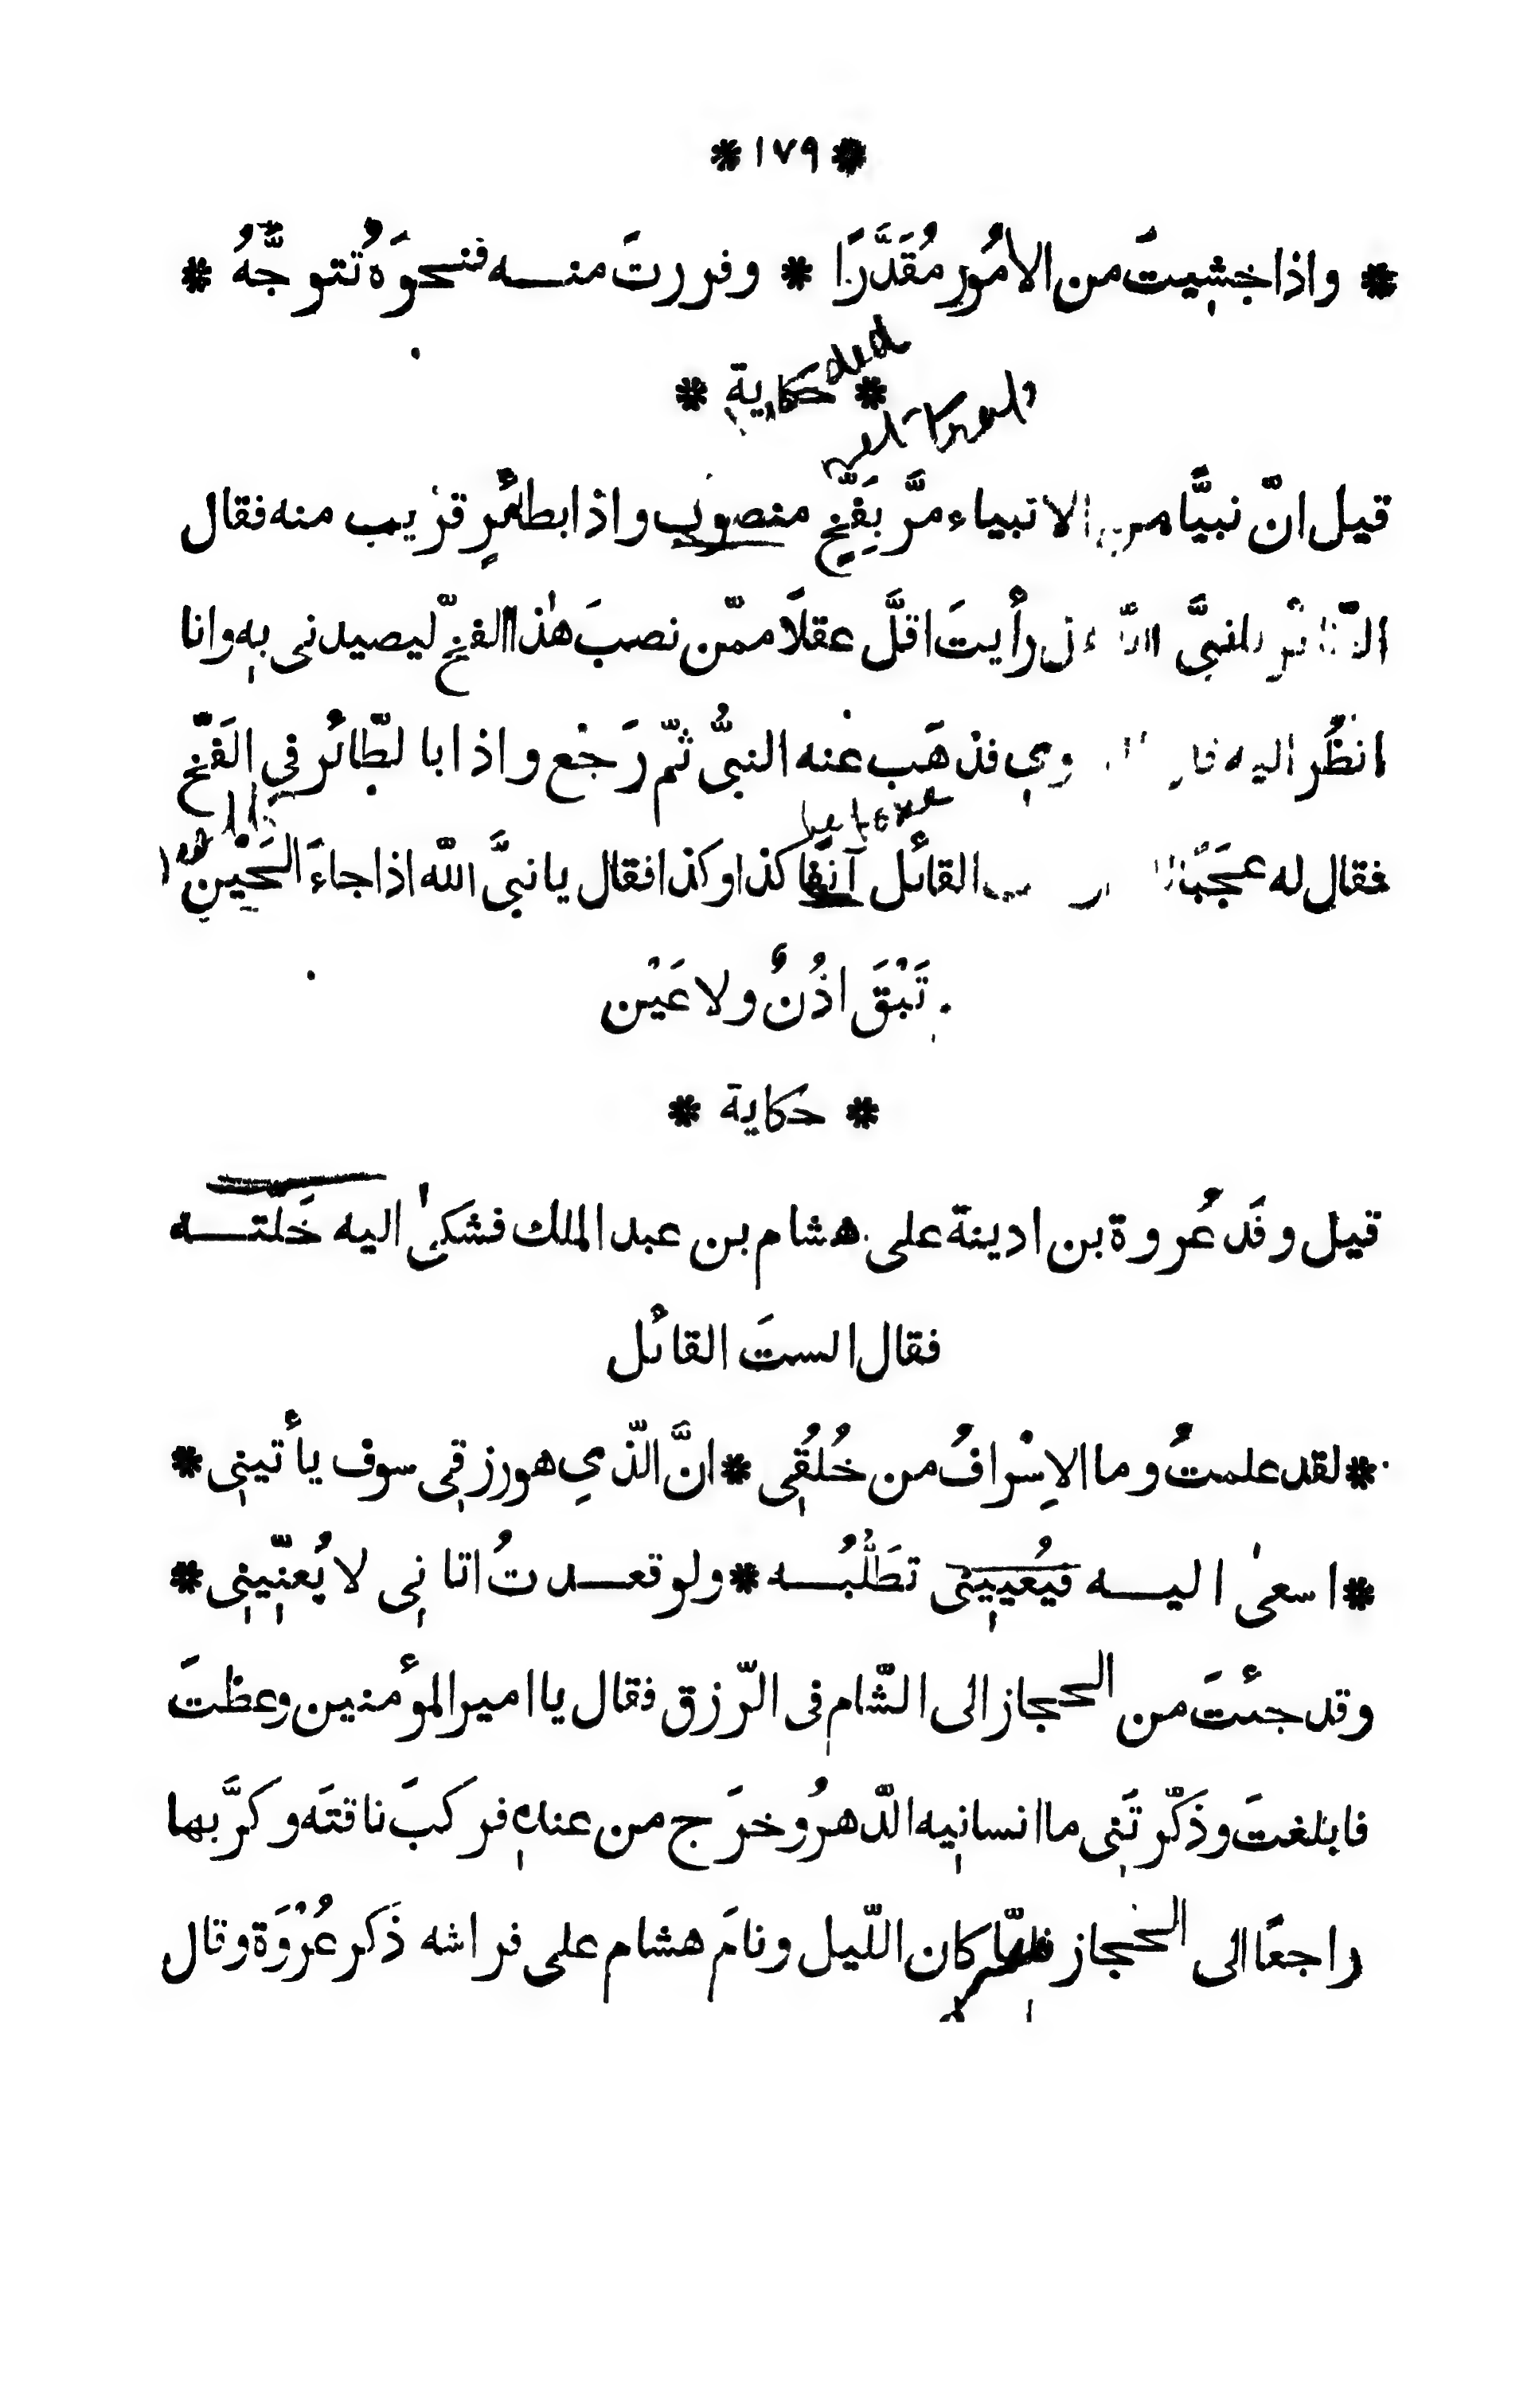 * ١٧٩ *
* واذا خشِيتَ من الأمُورِ مُقَدَّرًا * وفررتَ منه فنحوَهُ تتوجَّهُ *
* حكاية *
قيل انّ نبيًّا من الانبياء مرَّ بِفَخٍّ منصوبٍ واذا بطائرٍ قريب منه فقال
الطّائر للنبىَّ رأيتَ اقلَّ عقلًا ممّن نصبَ هٰذا الفخّ ليصيدنى بهِ وانا
انظُر اليه فذهَب عنه النبىُّ ثمّ رَجَع واذا بالطّائر في الفَخّ
فقال له عجَبًا القائل آنفًا كذا وكذا فقال يا نبىَّ الله اذا جاءَ الحَيْن
تَبْقَ اذُنٌ ولا عَيْن
* حكاية *
قيل وفَد عُروة بن اذينة على هشام بن عبد الملك فشكىٰ اليه خَلته
فقال الستَ القائل
* لقد علمتُ وما الاِسْرافُ من خُلُقِى * انَّ الّذِي هو رزقِى سوف يأتينِى *
* اسعىٰ اليه فيُعيِينى تطَلُّبُه * ولو قعدتُ اتانِى لا يُعنِّينِى *
وقد جئتَ من الحجاز الى الشّام فى الرّزق فقال يا امير المؤمنين وعظتَ
فابلغتَ وذَكّرتَنِى ما انسانِيه الدّهرُ وخرَج من عندهِ فركبَ ناقتَه وكرَّ بها
راجعًا الى الحجاز فلمّا كان اللّيل ونامَ هشام على فراشه ذَكر عُرْوَة وقال